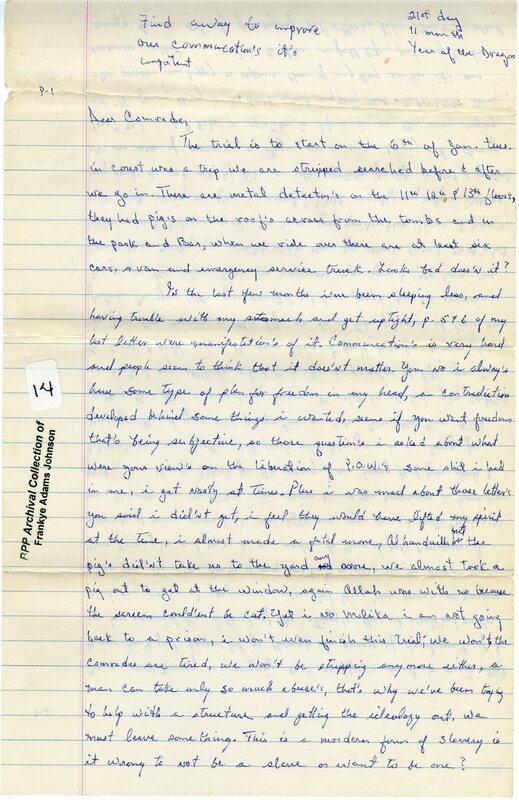 Find away to improve
our commucation's it's
important
21st day
11 month
Year of the Dragon
P-1
Dear Comrade,
The trial is to start on the 6th of Jan. tues.
in court was a trip we are stripped searched before & after
we go in. There are metal detector's on the 11th 12th & 13th floors,
they had pig's on the roof's across from the tombs and in
the park and Bar, when we ride over there are at least six
cars, a van and emergency service truck. Looks bad does'n it?
In the last few months i've been sleeping less, and
having trouble with my stomach and get uptight, p. 5 & 6 of my
last letter were manifestation's of it. Communication's is very hard
and people seem to think that it does'nt matter. You no i alway's
have some type of plan for freedom in my head, a contradiction
developed behind some things i wanted, seems if you want freedom
that's being subjective, so those question's i asked about what
were your view's on the liberation of P.O.W.s some shit i had
in me, i get nasty at times. Plus i was mad about those letter's
you said i did'nt get, i feel they would have lifted my spirit
at the time, i almost made a fatal move, the
pig's did'nt take us to the yard any more, we almost took a
pig out to get at the window, again Allah was with us because
the screen could'ent be cut. Yet i no Malika i am not going
back to a prison, i won't even finish this trial; we won't the
comrades are tired, we won't be stripping anymore either, a
man can take only so much abuse's, that's why we've been trying
to help with a structure and getting the ideology out, we
must leave some thing. This is a mordern form of slavery is
it wrong to not be a slave or want to be one?
14
BPP Archival Collection of
Frankye Adams Johnson